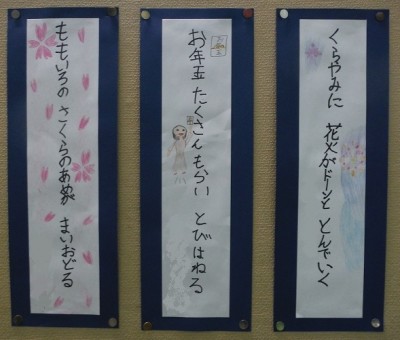 くらやみに 花火がドーンと とんでいく
お年玉 たくさんもらい とびはねる
ももいろの さくらのあめが まいおどる